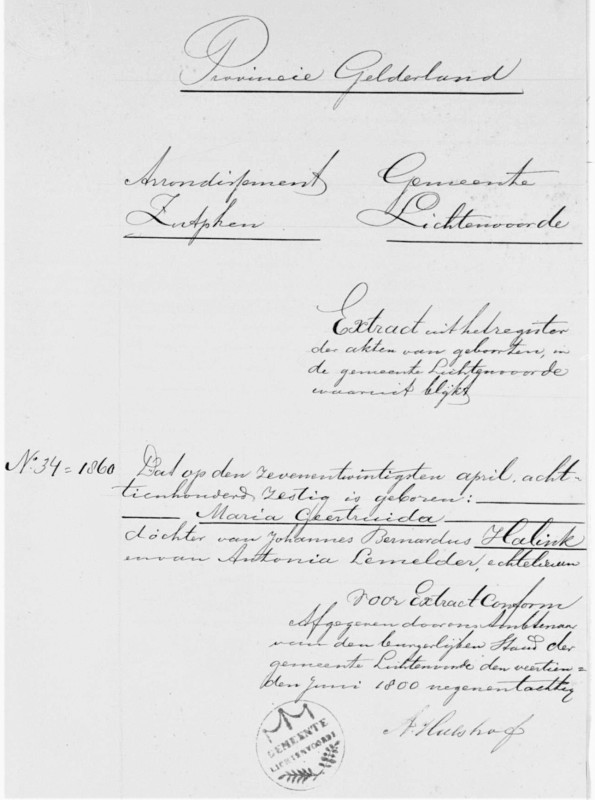 Provincie Gelderland
Arrondissement
Zutphen
Gemeente
Lichtenvoorde
Extract uit het register
der akten van geboorten, in
de gemeente Lichtenvoorde
waaruit blijkt
No. 34 = 1860
Dat op den zevenentwintigsten april, acht-
tienhonderd zestig is geboren:
Maria Geertruida
dochter van Johannes Bernardus Halink
en van Antonia Lemelder, echtelieden
Voor Extract Conform
Afgegeven door ons Ambtenaar
van den burgerlijken Stand der
gemeente Lichtenvoorde den veertien=
den Juni 1800 negenentachtig
A. Hulshof
GEMEENTE
LICHTENVOORDE